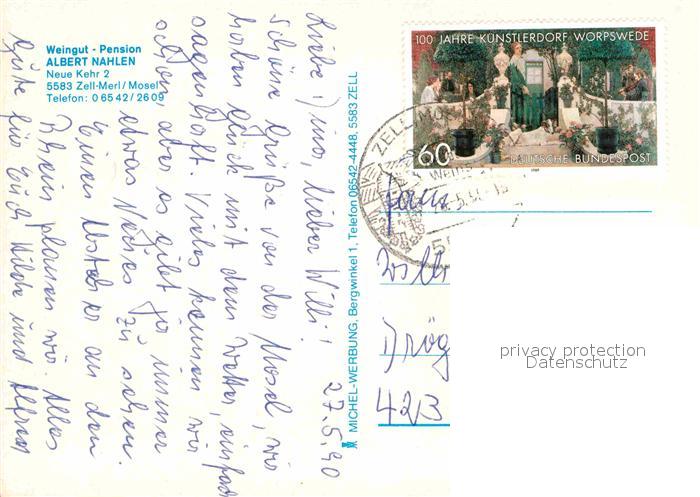 Weingut - Pension
ALBERT NAHLEN
Neue Kehr 2
5583 Zell-Merl/Mosel
Telefon: 0 65 42/26 09
27.5.90
Liebe Tino, lieber Willi!
Schöne Grüße von der Mosel, wir
haben Glück mit dem Wetter, einfach
sagenhaft. Vieles kennen wir
schon aber es gibt ja immer
etwas Neues zu sehen.
Einen Abstecher an den
Rhein planen wir. Alles
Gute für Euch Hilde und Alfred
MICHEL-WERBUNG, Bergwinkel 1, Telefon 06542-4448, 5583 ZELL
100 JAHRE KÜNSTLERDORF WORPSWEDE
60
DEUTSCHE BUNDESPOST
ZELL
Fam
Willi
Drög
423
privacy protection
Datenschutz